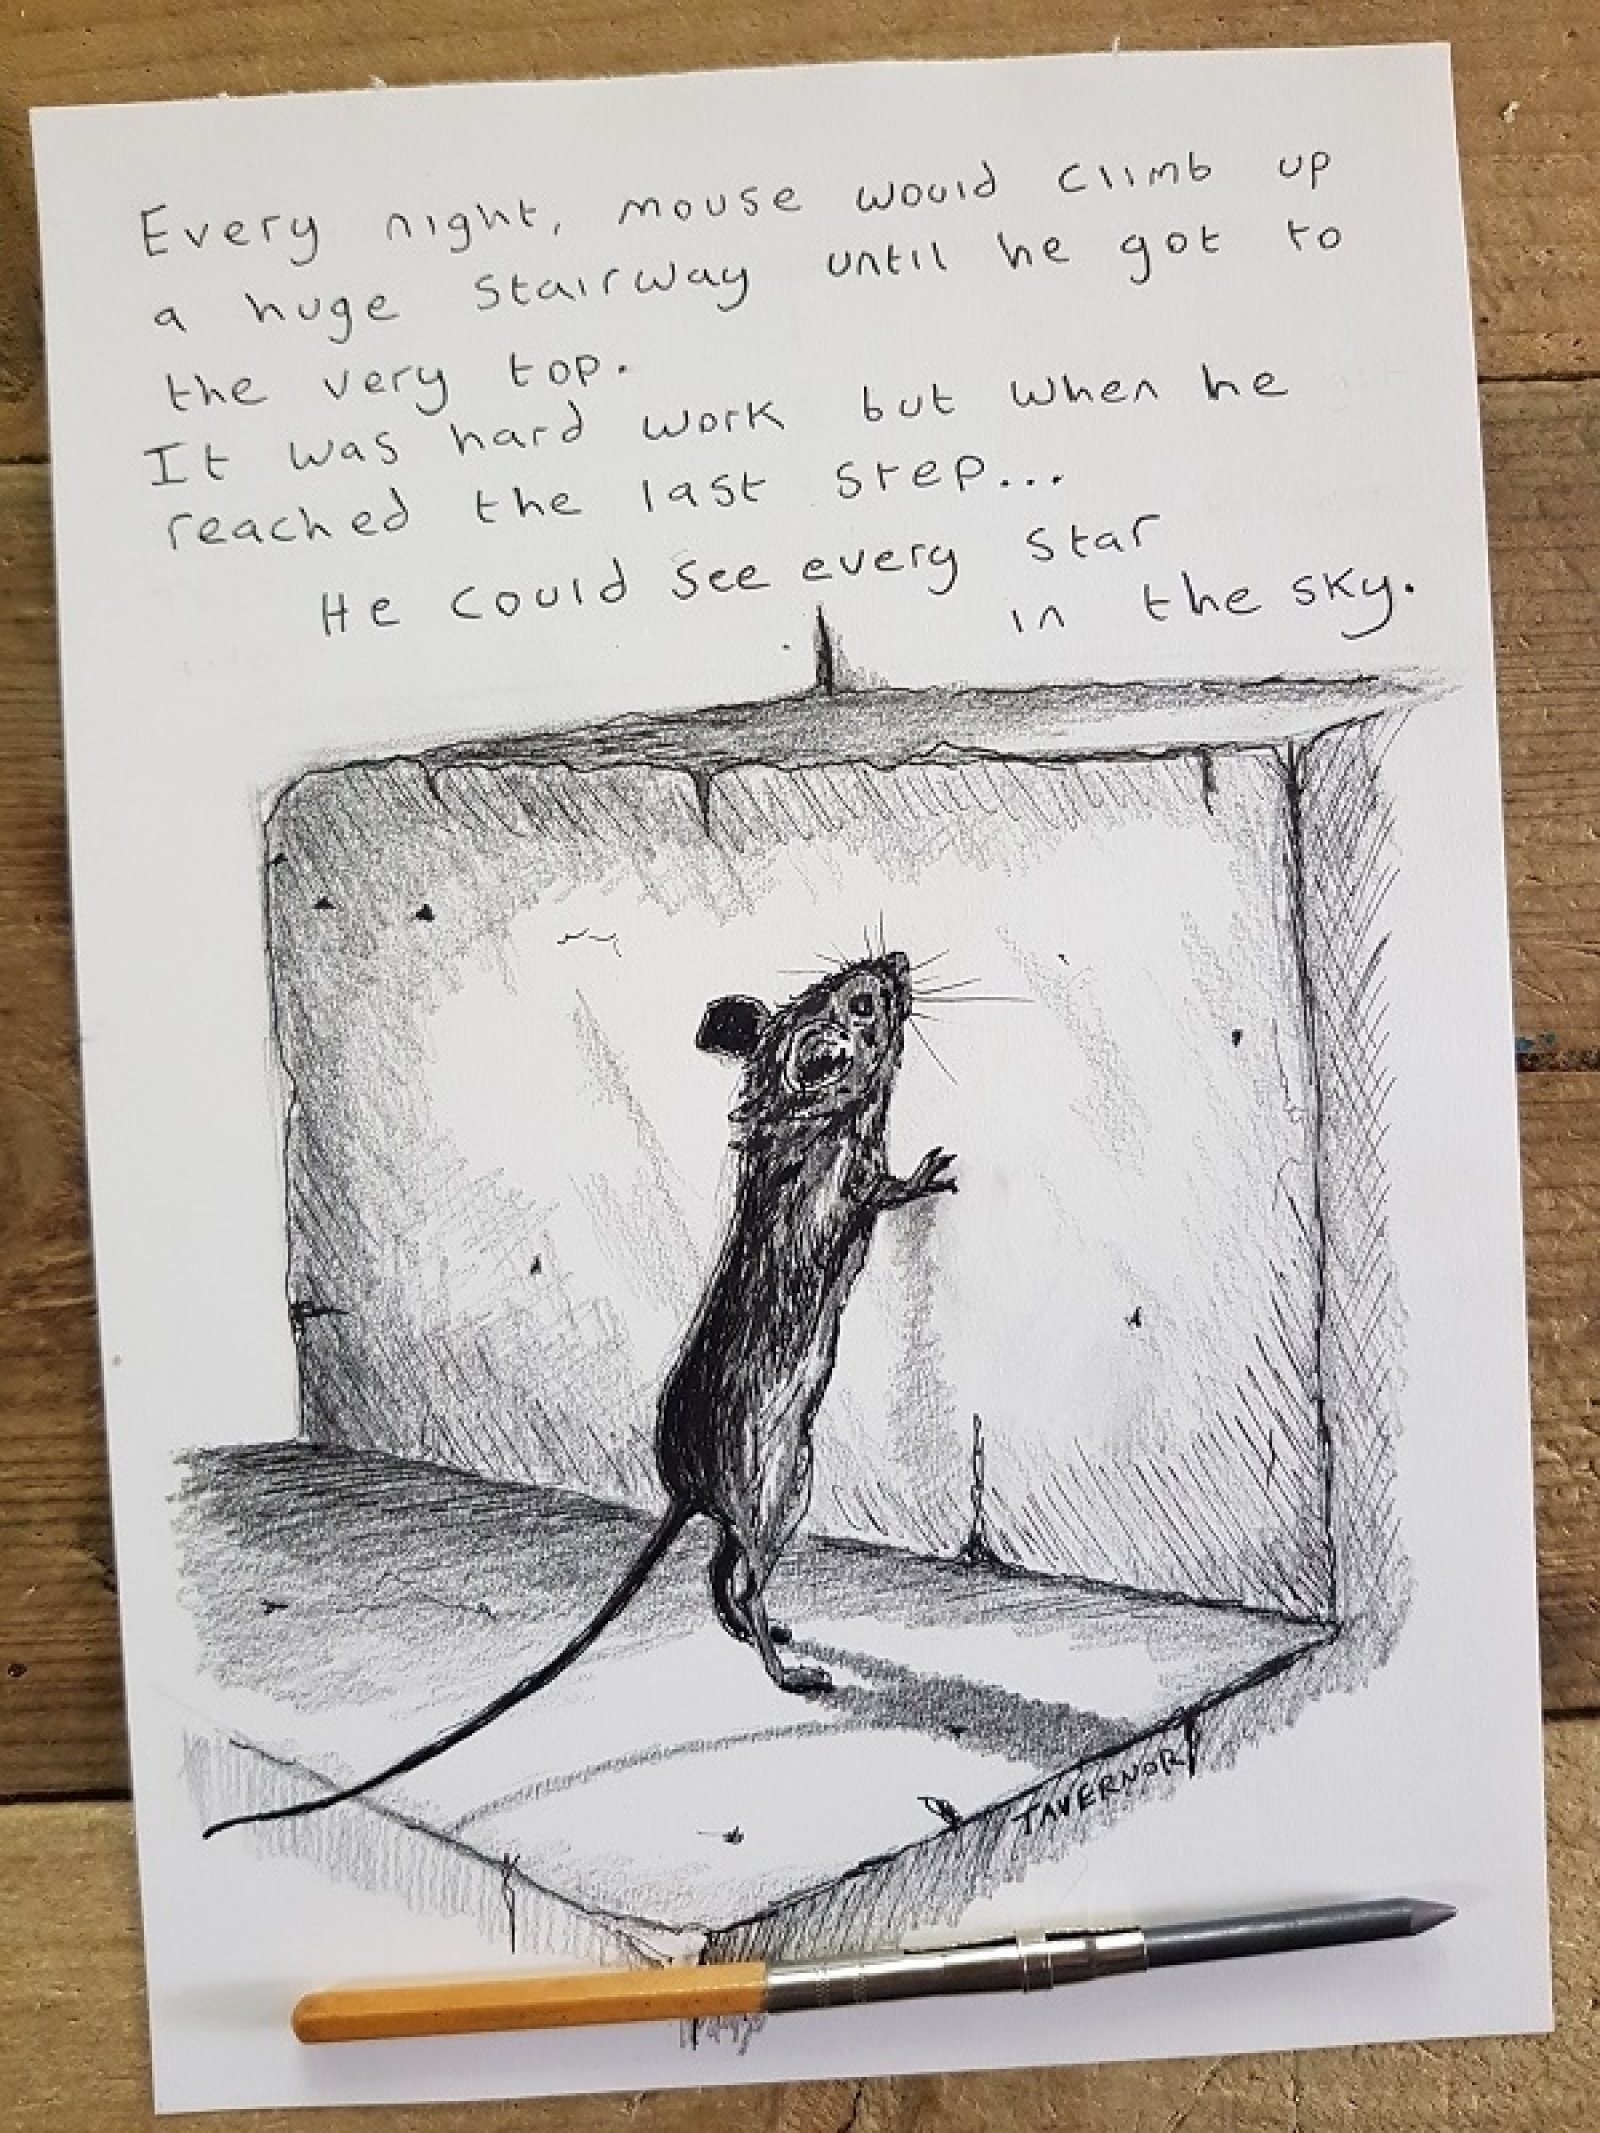 Every night, mouse would climb up
a huge stairway until he got to
the very top.
It was hard work but when he
reached the last step...
He could see every star
in the sky.
TAVERNOR